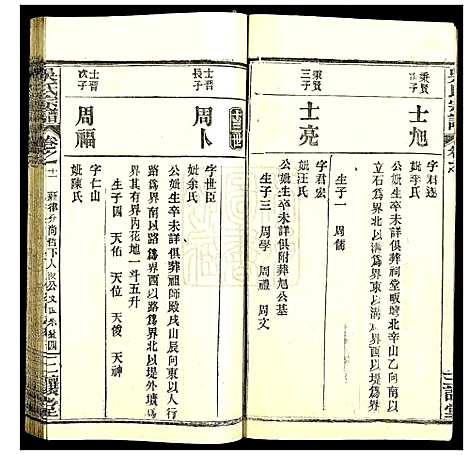 秉賢
次子
士旭
字君遜
妣李氏
公妣生卒未詳俱葬祠堂畈塘北辛山乙向南以
立石爲界北以溝爲界東以溝爲界西以堤爲界
生子一 周儒
秉賢
三子
士亮
字君宏
妣汪氏
公妣生卒未詳俱附葬旭公墓
生子三 周學 周禮 周文
士晋
長子
周卜
字世臣
妣余氏
公妣生卒未詳俱葬祖師殿戌山辰向東以人行
路爲界南以路爲界西以路爲界北以堤外墳爲
界其界內花地一斗五升
生子四 天佑 天位 天俊 天神
士晋
次子
周福
字仁山
妣陳氏
吳氏宗譜
卷之